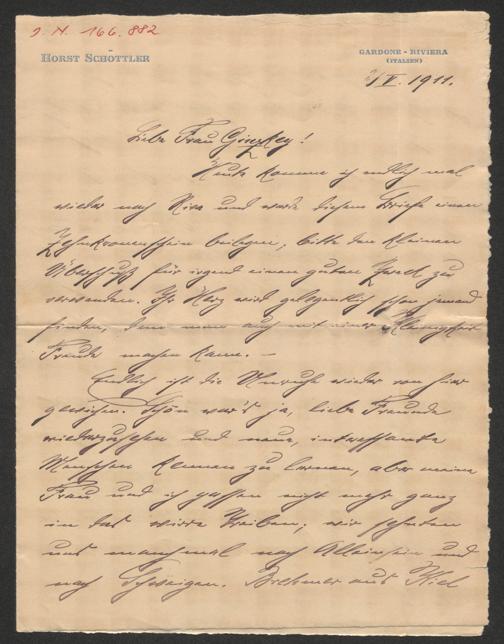 J. N. 166.882
HORST SCHÖTTLER
GARDONE - RIVIERA
(ITALIEN)
V. 1911.
Liebe Frau Ginzkey!
Heute komme ich endlich mal
wieder nach Riva und werde diesem Briefe einen
Zehnkronenschein beilegen; bitte den kleinen
Überschuß für irgend einen guten Zweck zu
verwenden. Ihr Herz wird gelegentlich schon jemand
finden, dem man auch mit einer Kleinigkeit
Freude machen kann. –
Endlich ist die Unruhe wieder von hier
gewichen. Schön war's ja, liebe Freunde
wiederzusehen und neue, interessante
Menschen kennen zu lernen, aber meine
Frau und ich passen nicht mehr ganz
in das wirre Treiben; wir sehnten
uns manchmal nach Alleinsein und
nach Schweigen. Brehmer aus Kiel